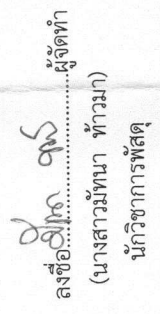 ลงชื่อ........................ผู้จัดทำ
(นางสาวมัทนา ท้าวมา)
นักวิชาการพัสดุ